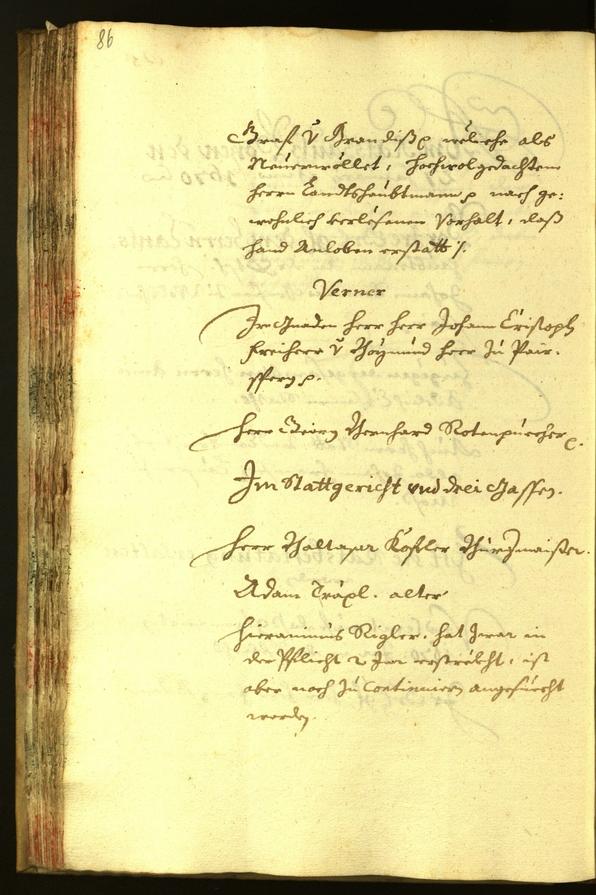 86
Graf v̈ Brandiß welche als
Neuerwöllet, hochwolgedachtem
herrn Landtshaubtmann nach ge:
wohnlich verlesenem Vorhalt, das
hand Anloben erstatt /.
Verner
Ir Gnaden herr herr Johann Cristoph
freiherr v̈
herr Georg Bernhard Rotenpuecher
Im Stattgericht vnd drei Gassen.
herr Balthasar Kofler Burgmaister.
Adam Träpl. alter
hieronimus Rigler. hat zwar in
der Pflicht 2 Jar erströckht, ist
aber noch zu Continuiern angesuecht
worden.